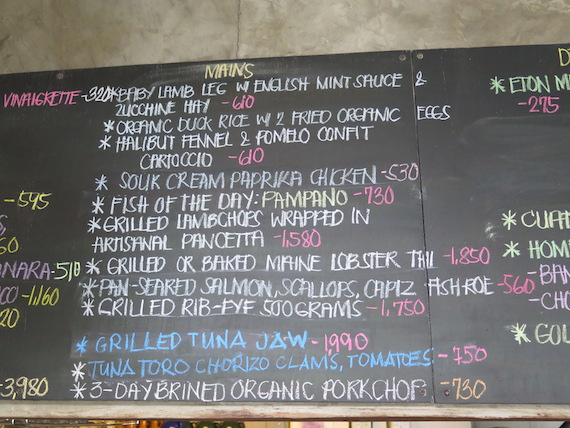 MAINS
VINAIGRETTE -320
* BABY LAMB LEG W/ ENGLISH MINT SAUCE &
ZUCCHINE HAY -610
* ORGANIC DUCK RICE W/ 2 FRIED ORGANIC EGGS
* HALIBUT FENNEL & POMELO CONFIT
CARTOCCIO -610
* SOUR CREAM PAPRIKA CHICKEN -530
* FISH OF THE DAY: PAMPANO -730
* GRILLED LAMBCHOPS WRAPPED IN
ARTISANAL PANCETTA -1,580
* GRILLED OR BAKED MAINE LOBSTER TAIL -1,850
* PAN-SEARED SALMON, SCALLOPS, CAPIZ FISH ROE -560
* GRILLED RIB-EYE 500GRAMS -1,750
* GRILLED TUNA JAW -1,990
* TUNA TORO CHORIZO CLAMS, TOMATOES -750
* 3-DAY BRINED ORGANIC PORKCHOP -730
-595
60
NARA -510
-1,160
20
-3,980
* ETON
-275
*
* HOM
- BAN
- CHO
* GOL